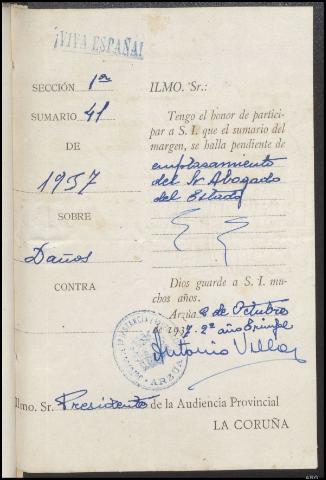 ¡VIVA ESPAÑA!
SECCIÓN 1ª
SUMARIO 41
DE
1937
SOBRE
Daños
CONTRA
ILMO. Sr.:
Tengo el honor de partici-
par a S. I. que el sumario del
margen, se halla pendiente de
emplasamiento
del Sr Abogado
del Estado
Dios guarde a S. I. mu-
chos años.
Arzúa 8 de Octubre
de 1937. 2º año Triunfal
Antonio Villar
Ilmo. Sr. Presidente de la Audiencia Provincial
LA CORUÑA
ARZUA